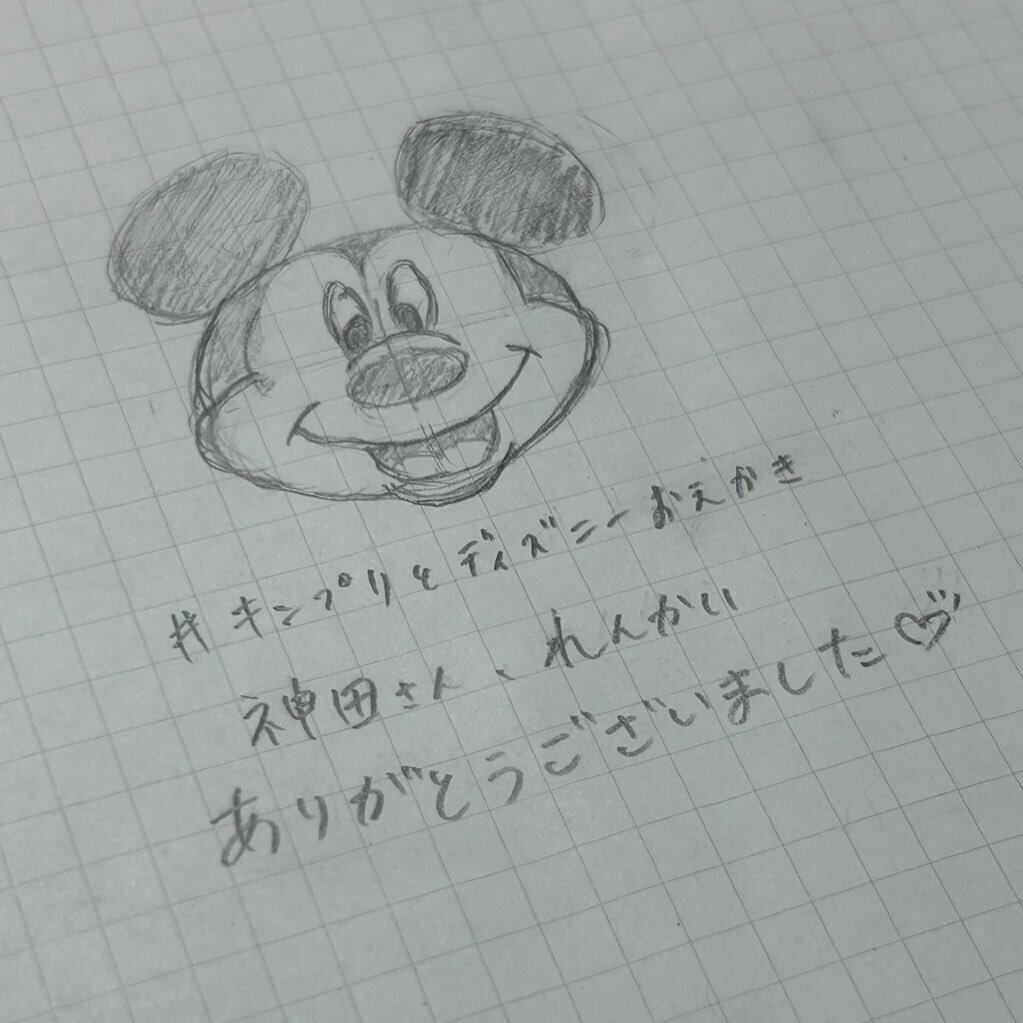 #キンプリとディズニーおえかき
神田さん、れんかい
ありがとうございました♡